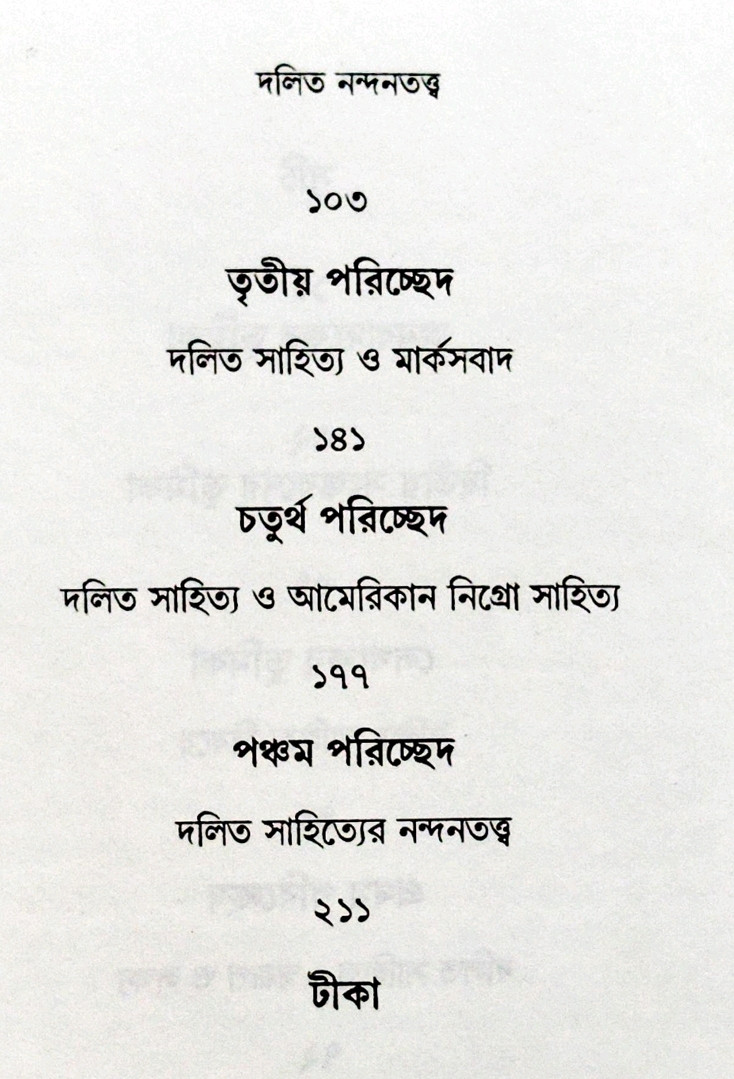 দলিত নন্দনতত্ত্ব
১০৩
তৃতীয় পরিচ্ছেদ
দলিত সাহিত্য ও মার্কসবাদ
১৪১
চতুর্থ পরিচ্ছেদ
দলিত সাহিত্য ও আমেরিকান নিগ্রো সাহিত্য
১৭৭
পঞ্চম পরিচ্ছেদ
দলিত সাহিত্যের নন্দনতত্ত্ব
২১১
টীকা